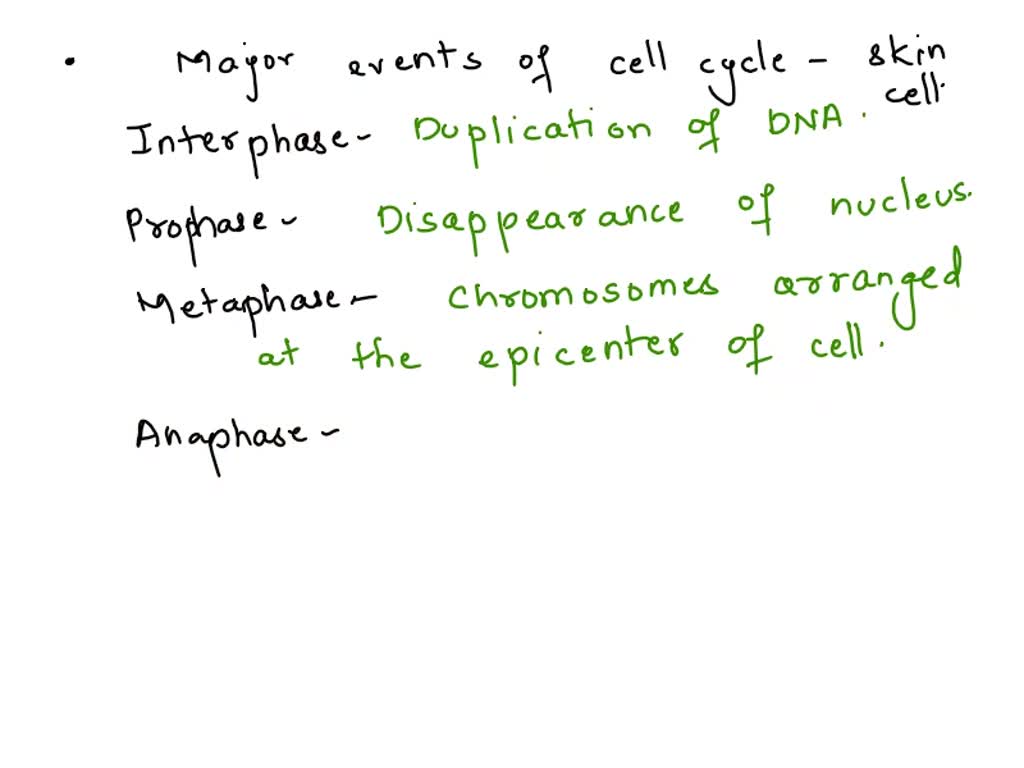 • Major events of cell cycle - skin cell.
Interphase - Duplication of DNA.
Prophase - Disappearance of nucleus.
Metaphase - Chromosomes arranged
at the epicenter of cell.
Anaphase -